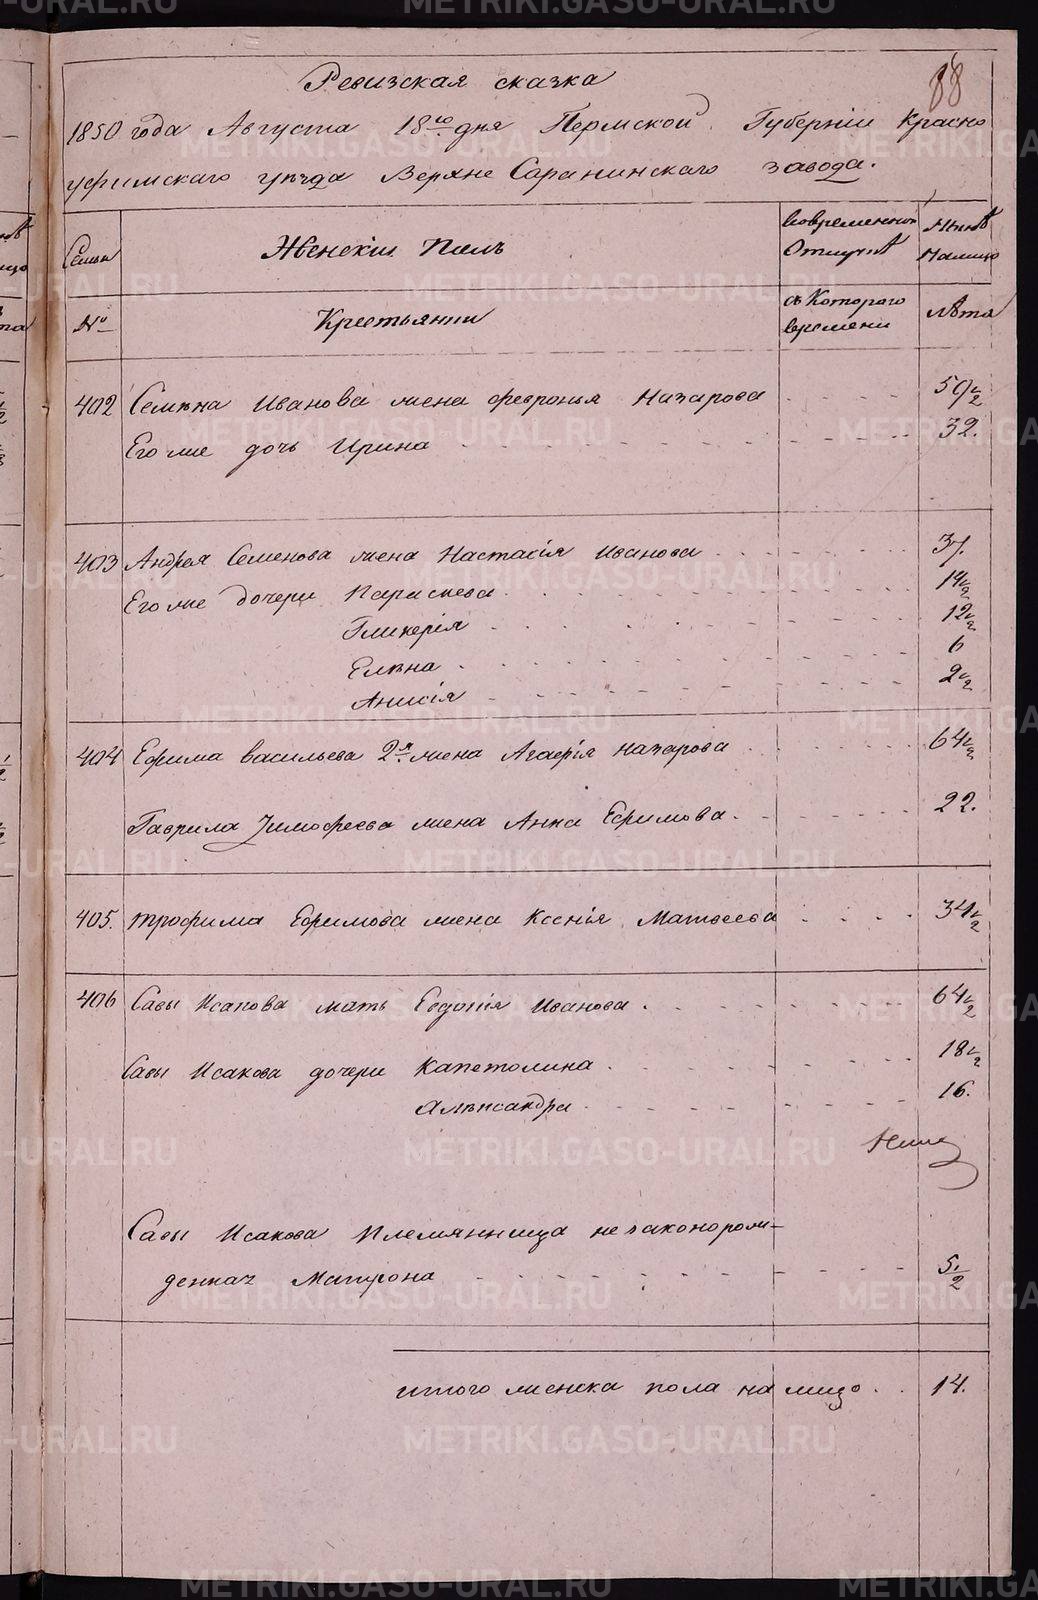 88
Ревизская сказка
1850 года Августа 18го дня Пермской Губернiи Красно
уфимскаго уѣзда Верхне Саранинскаго завода.
Семьи Женскiй Полъ Вовременной Отлучкѣ Нынѣ Налицо
№ Крестьянки Съ Которого времени лѣта
402 Семена Иванова жена Февронья Назарова 59 1/2
Его же дочь Ирина 32.
403 Андрея Семенова жена Настасiя Иванова 37.
Его же дочери Параскева 14 1/2
Гликерiя 12 1/2
Елѣна 6
Анисiя 2 1/2
404 Ефима васильева 2я жена Агафiя назарова 64 1/2
Гаврила Тимофеева жена Анна Ефимова. 22.
405. трофима Ефимова жена Ксенiя Матвеева 34 1/2
406 Савы Исакова мать Евдокiя Иванова 64 1/2
Савы Исакова дочери Капетолина 18 1/2
Александра 16.
Савы Исакова Племянница незаконорож-
денная Матрона 5 1/2
итого женска пола налицо 14.
METRIKI.GASO-URAL.RU